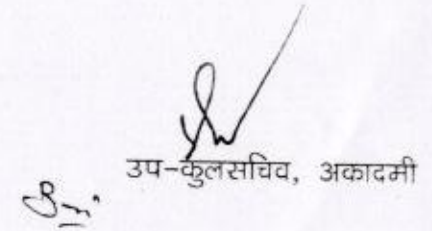 उप-कुलसचिव, अकादमी